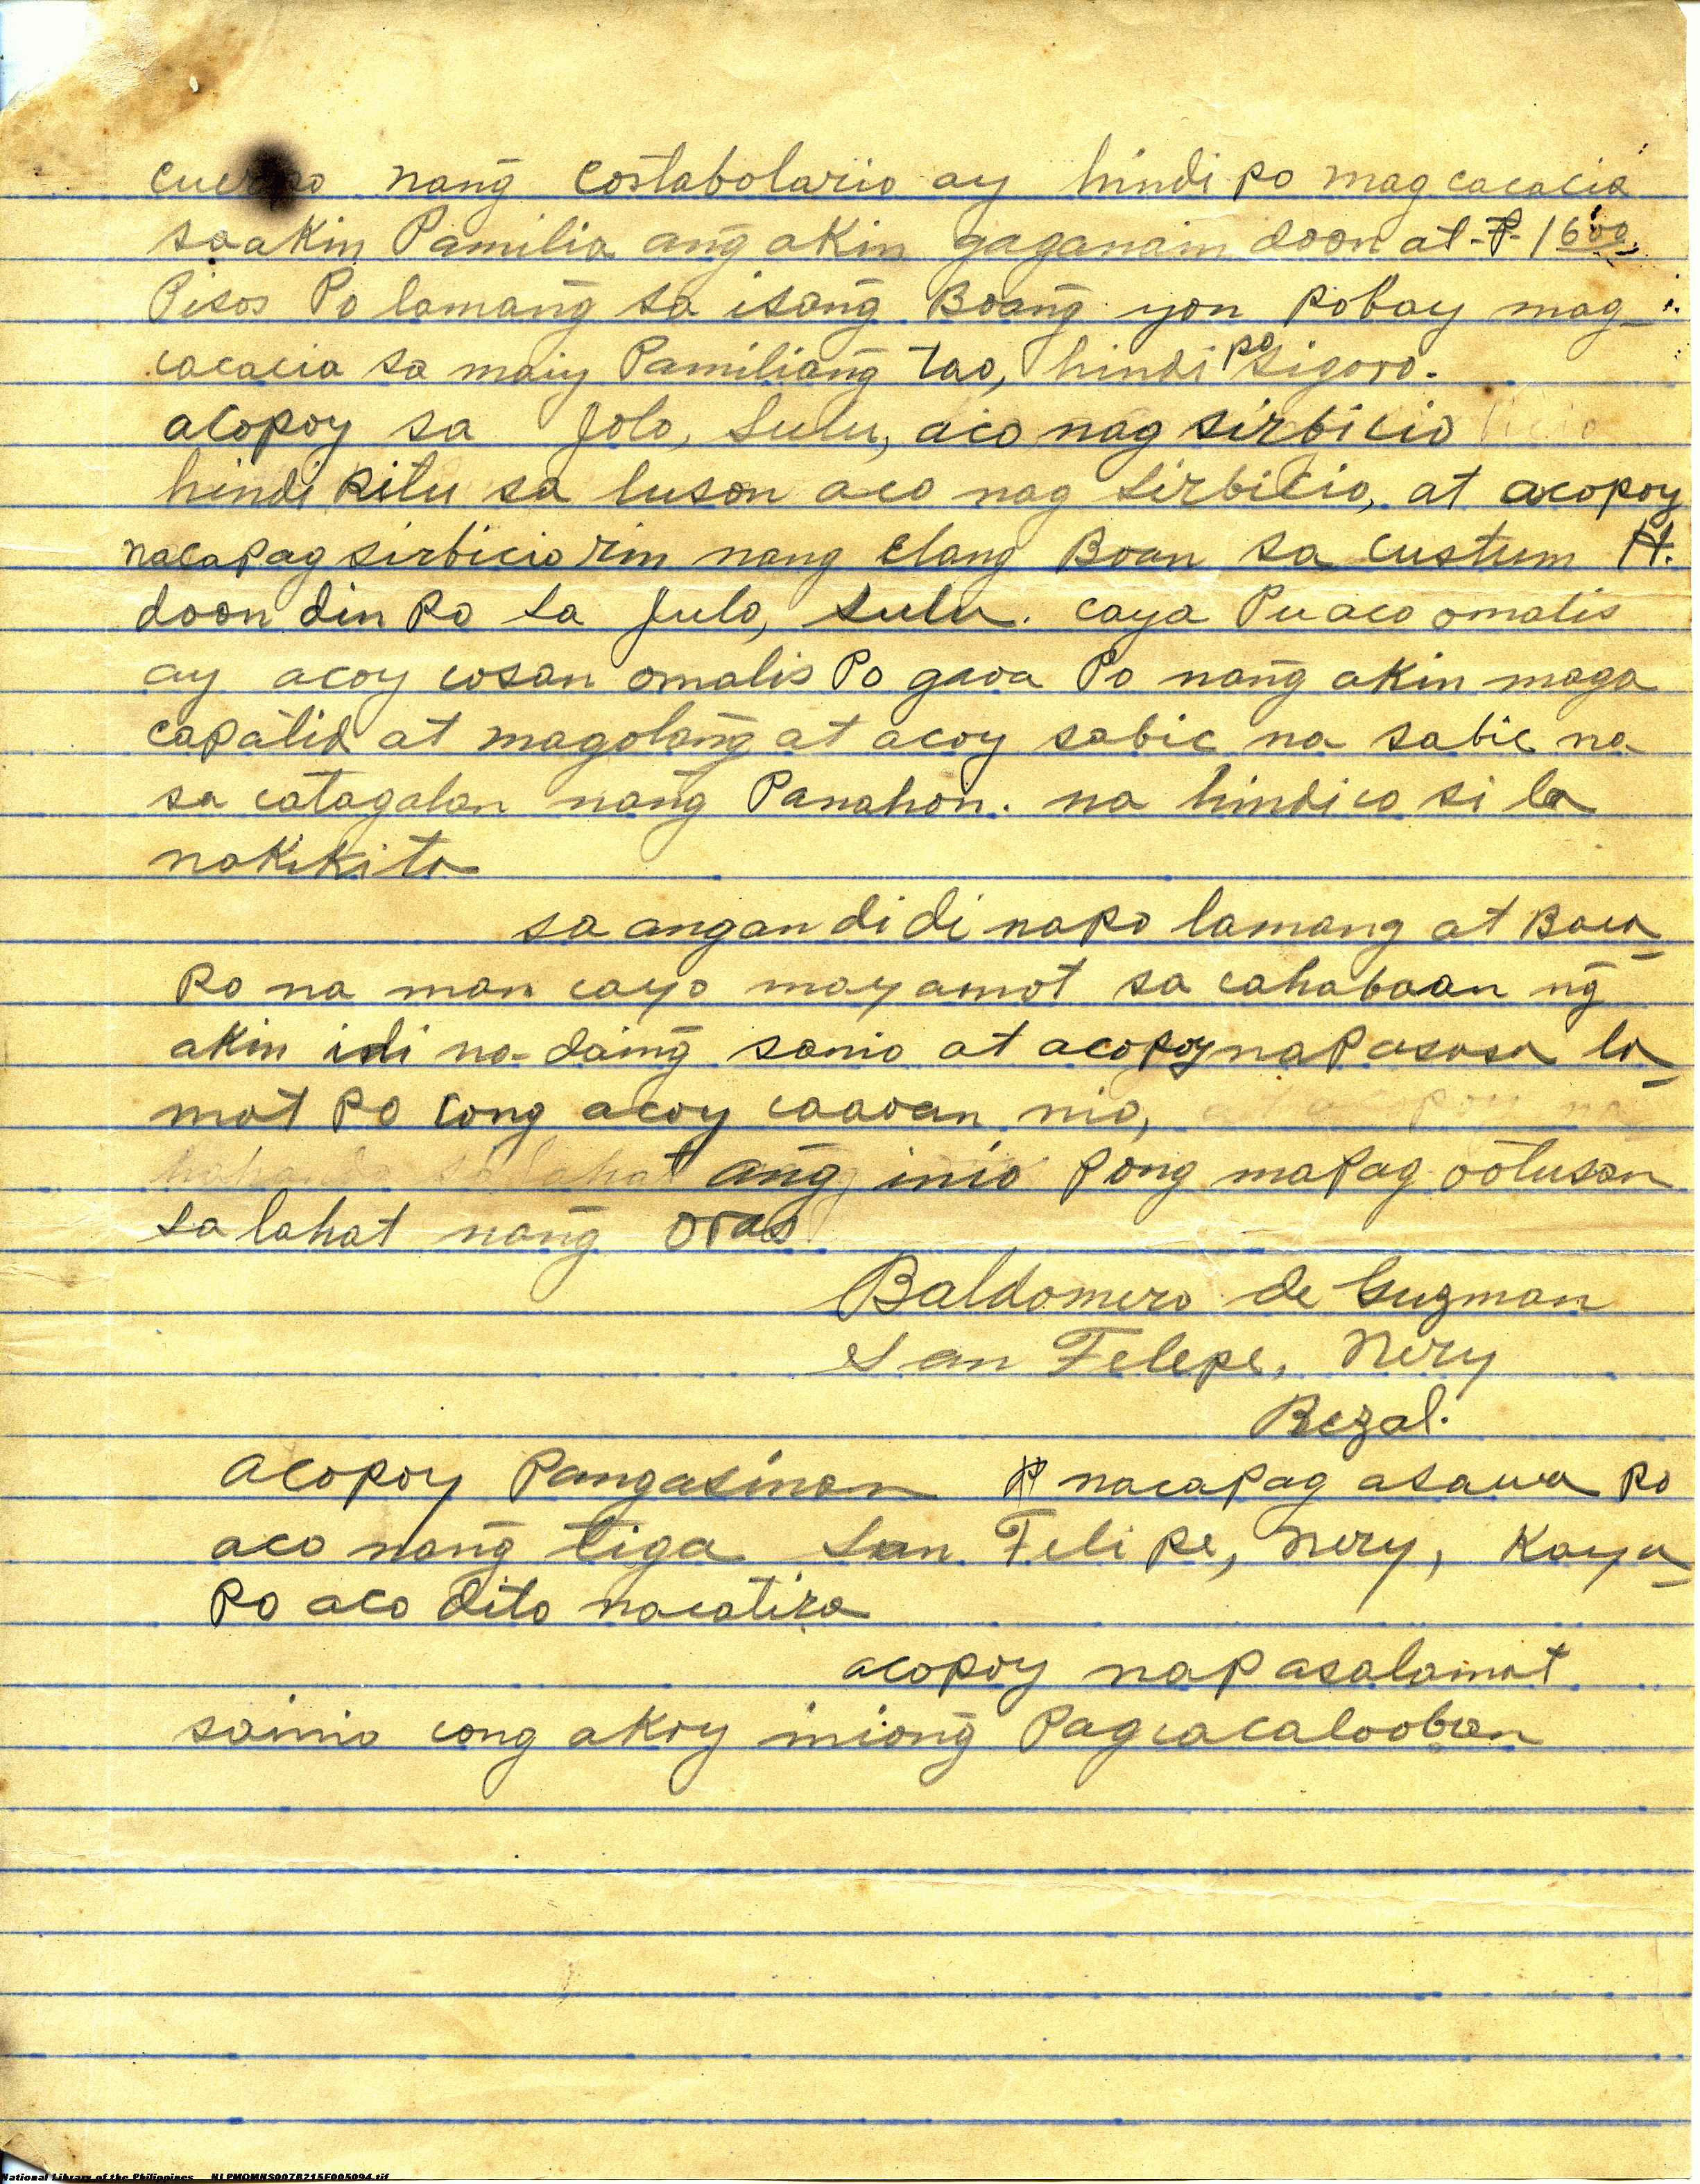 cuerpo nang costabolario ay hindi po mag cacacia
sa akin Pamilia ang akin gaganain doon at ₱ 16.00
Pisos Po lamang sa isang Boang yon pobay mag-
cacacia sa maiy Pamiliang tao, hindi po sigoro.
acopoy sa Jolo, Sulu, aco nag sirbicio
hindi ritu sa luson aco nag sirbicio, at acopoy
nacapag sirbicio rin nang elang Boan sa custum H.
doon din Po sa Julo, Sulu. caya Pu aco omalis
ay acoy cosan omalis Po gaoa Po nang akin maga
capatid at magolang at acoy sabic na sabic na
sa catagalan nang Panahon. na hindi co si la
nakikita
sa angan di di napo lamang at Baca
Po na man cayo mayamot sa cahabaan ng
akin idi na-daing sanio at acopoy napasasa la
mat po cong acoy caaoan nio,
ang inio pong mapag ootusan
sa lahat nang oras
Baldomero de Guzman
San Felepe, Nery
Rezal.
acopoy Pangasinan nacapag asawa po
aco nang tiga San Felipe, Nery, Kaya
Po aco dito nacatira
acopoy napasalamat
sainio cong akoy iniong Pagcacalooban
National Library of the Philippines NLPMQMNS007B215F005094.tif